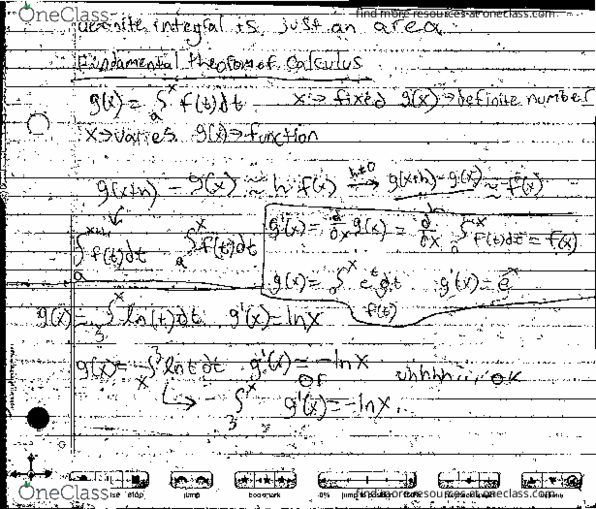 OneClass find more resources at oneclass.com
definite integral is just an area
Fundamental theorem of Calculus
g(x) = ∫ₐˣ f(t)dt x → fixed g(x) → definite number
x → varies g(x) → function
g(x+h) - g(x) ≈ h f(x) h≠0 → g(x+h) - g(x) / h ≈ f(x)
∫ₐˣ⁺ʰ f(t)dt ∫ₐˣ f(t)dt g'(x) = d/dx g(x) = d/dx ∫ₐˣ f(t)dt = f(x)
g(x) = ∫₀ˣ eᵗ dt g'(x) = eˣ
f(t)
g(x) = ∫₃ˣ ln(t)dt g'(x) = lnx
g(x) = ∫ₓ³ lnt dt g'(x) = -lnx uhhhh... ok
or
→ - ∫₃ˣ g'(x) = -lnx.
stop jump bookmark 0%
OneClass find more resources at oneclass.com